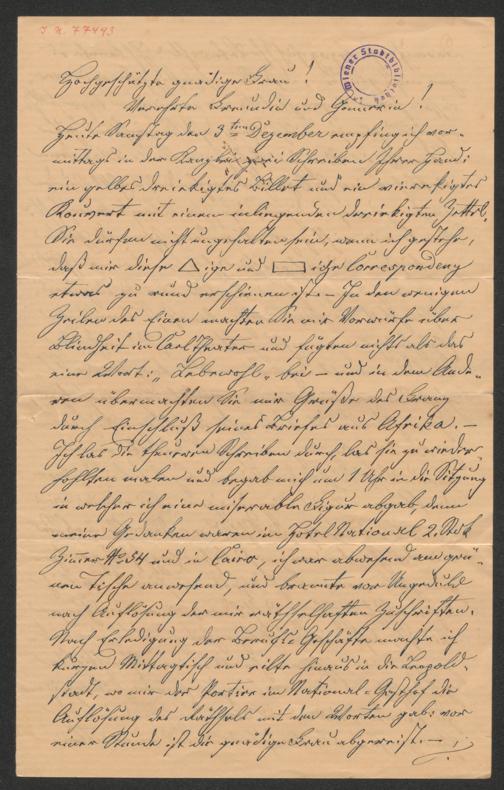 I. N. 77493
Wiener Stadtbibliothek
Hochgeschätzte gnädige Frau!
Verehrte Freundin und Gönnerin!
Heute Samstag den 3ten Dezember empfing ich vor-
mittags in der Kanzlei zwei Schreiben Ihrer Hand:
ein gelbes dreieckigtes Billet und ein viereckigtes
Kouvert mit einem inliegenden dreieckigten Zettel.
Sie dürfen nicht ungehalten sein, wenn ich gestehe,
daß mir diese △ ige und ▭ ige Correspondenz
etwas zu rund erschienen ist. – In den wenigen
Zeilen des Einen machten Sie mir Vorwürfe über
Blindheit im Carltheater und fügten nichts als das
eine Wort: „Lebewohl" bei – und in dem Ande-
ren übermachten Sie mir Grüße des Franz
durch Einschluß seines Briefes aus Afrika. –
Ich las die theueren Schreiben durch, las sie zu wieder-
hohlten malen und begab mich um 1 Uhr in die Sitzung
in welcher ich eine miserable Figur abgab, denn
meine Gedanken waren im Hotel National 2. Stok
Zimer No 54 und in Cairo, ich war abwesend am grü-
nen Tische anwesend, und brannte vor Ungeduld
nach Auflösung der mir räthselhaften Zuschriften.
Nach Erledigung der Berufs Geschäfte machte ich
kurzen Mittagtisch und eilte hinaus in die Leopold-
stadt, wo mir der Portier im National-Gasthof die
Auflösung des Räthsels mit den Worten gab: vor
einer Stunde ist die gnädige Frau abgereist. –